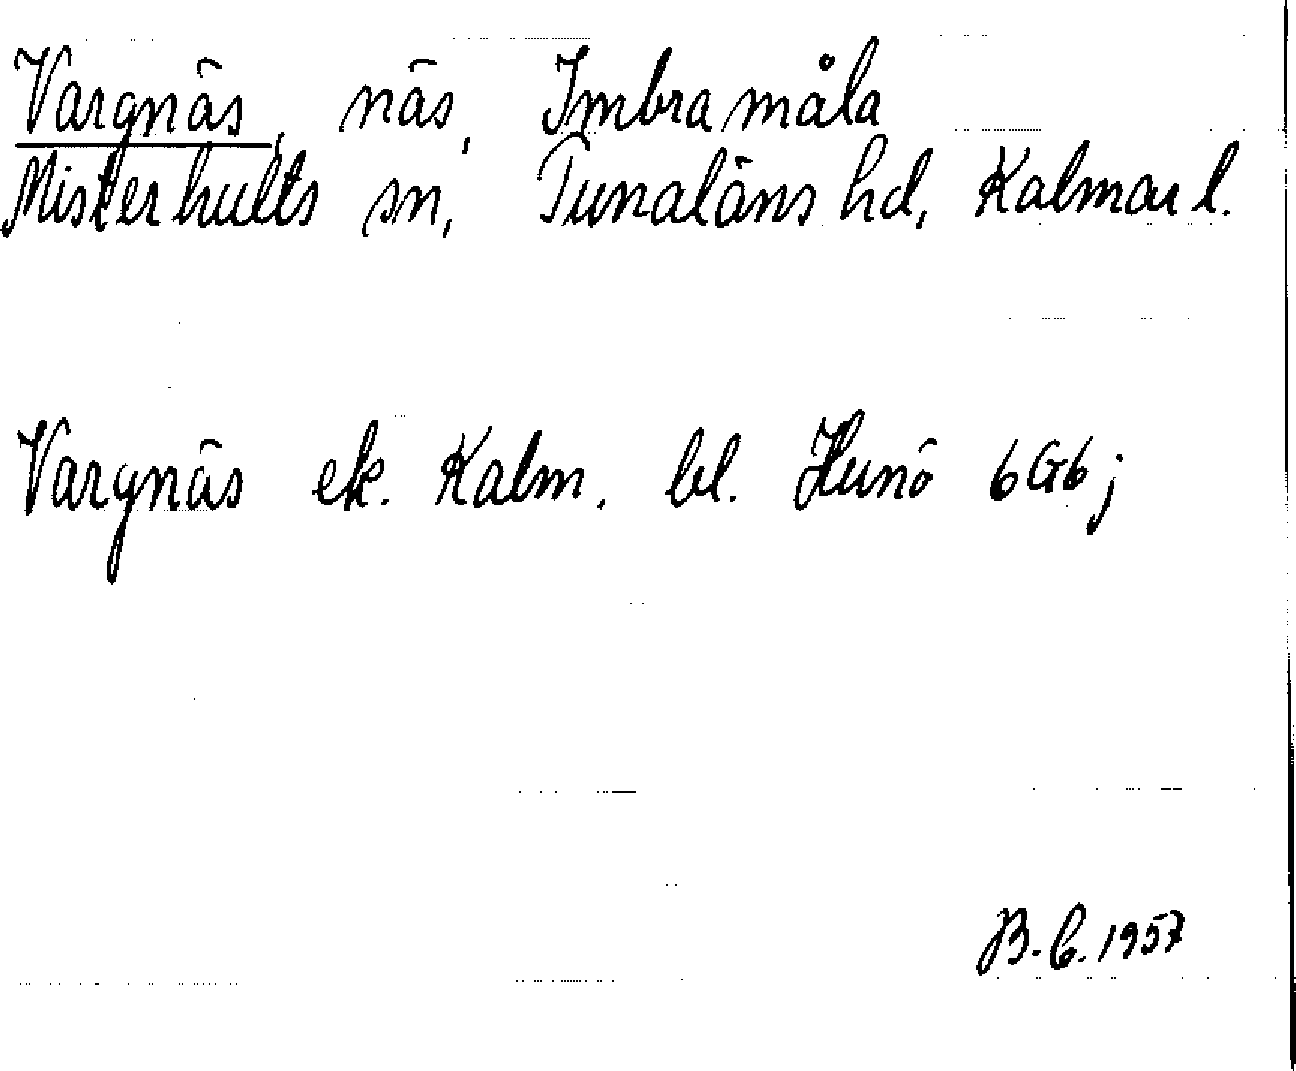 Vargnäs, näs, Imbramåla
Misterhults sn, Tunaläns hd, Kalmar l.
Vargnäs ek. Kalm. bl. Hunö 6G6j
B.C. 1957